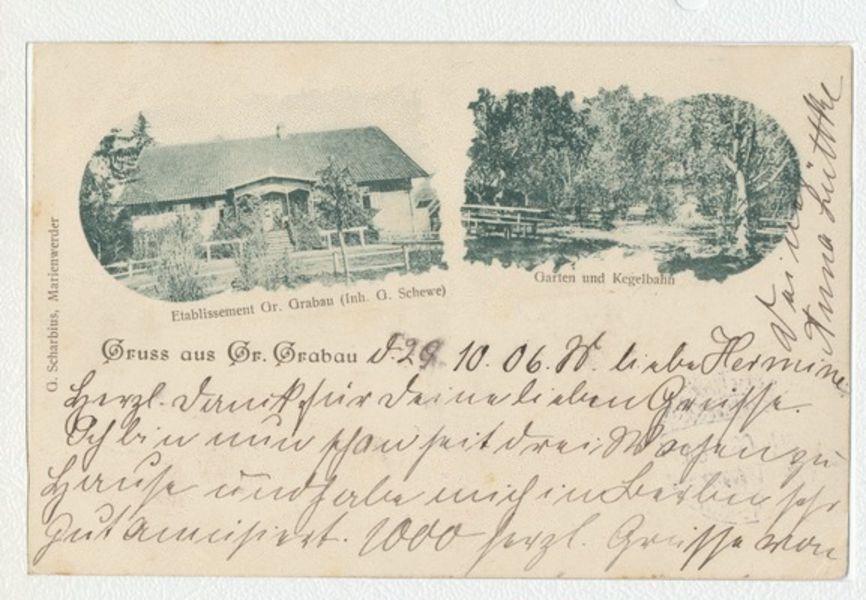 Etablissement Gr. Grabau (Inh. G. Schewe)
Garten und Kegelbahn
G. Scharbius, Marienwerder
Gruss aus Gr. Grabau d. 29. 10. 06. W. liebe Hermine
Herzl. Dank für deine lieben Grüsse.
Ich bin nun schon seit drei Wochen zu
Hause und habe mich in Berlin sehr
gut amüsiert. 1000 herzl. Grüsse von
Deine
Anna Lüttke